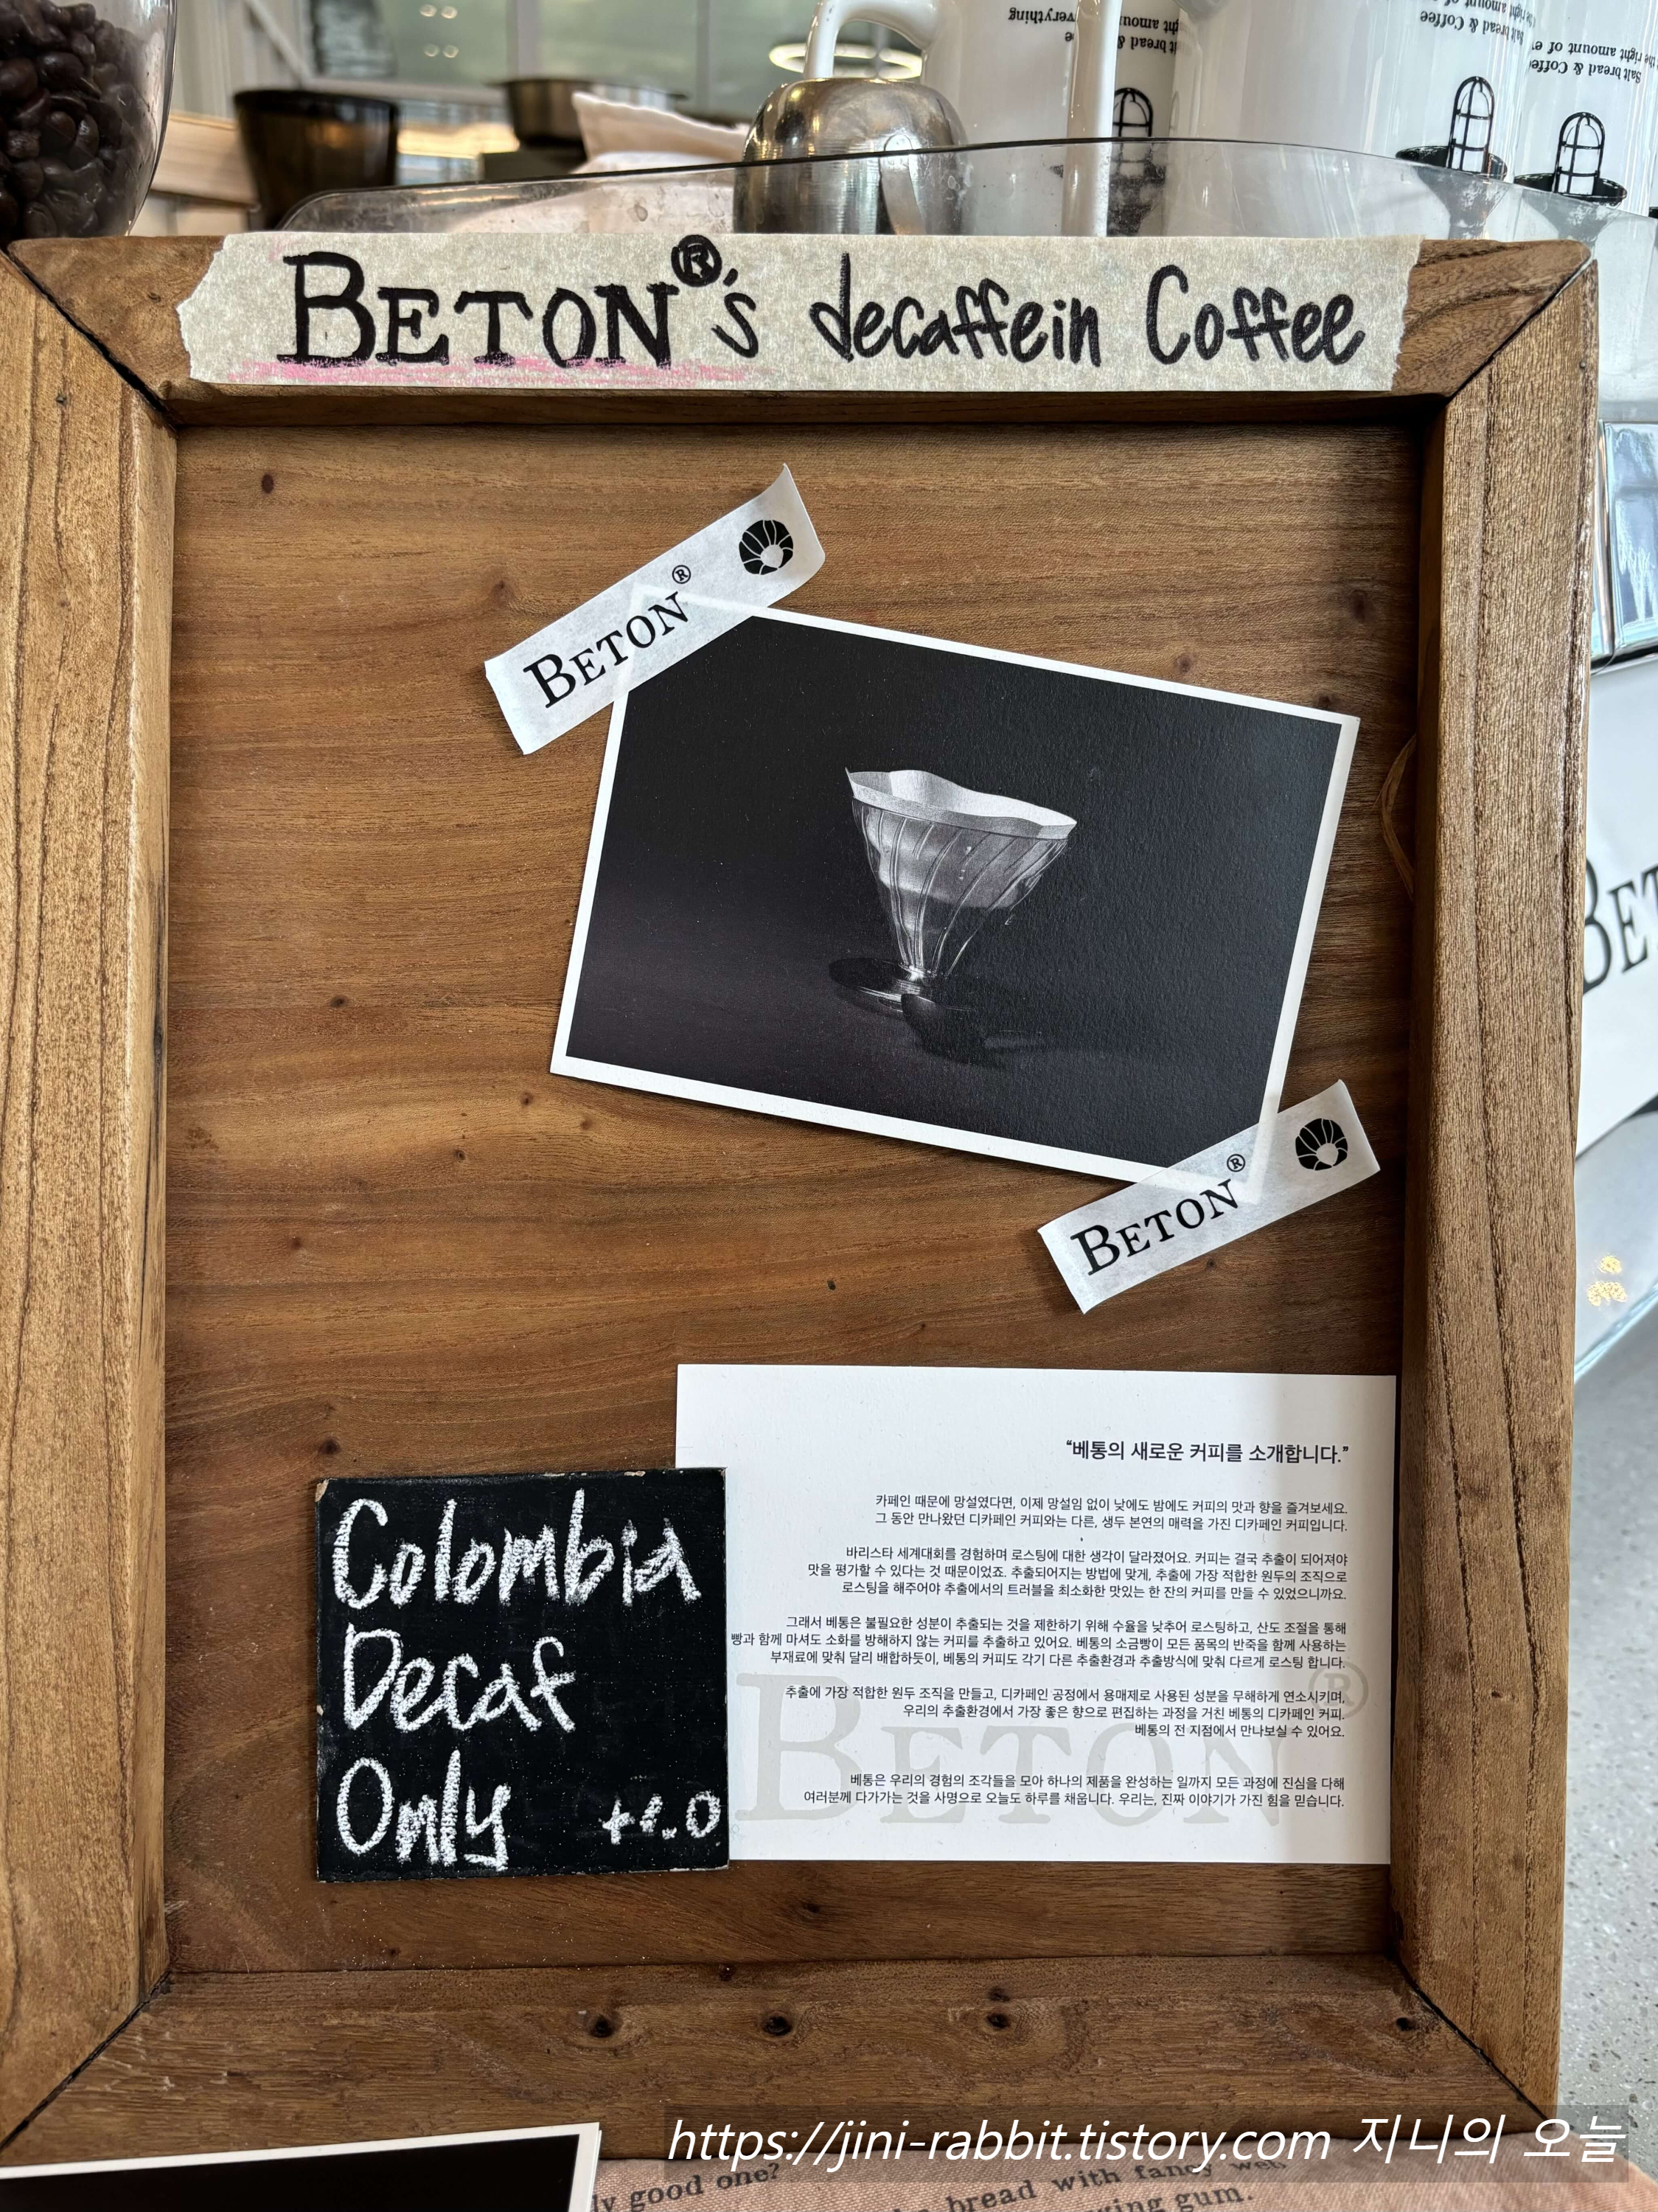 everything
Salt bread & Coffee
the right amount of
BETON®'s decaffein Coffee
BETON®
BETON®
BET
"베통의 새로운 커피를 소개합니다."
카페인 때문에 망설였다면, 이제 망설임 없이 낮에도 밤에도 커피의 맛과 향을 즐겨보세요.
그 동안 만나왔던 디카페인 커피와는 다른, 생두 본연의 매력을 가진 디카페인 커피입니다.
바리스타 세계대회를 경험하며 로스팅에 대한 생각이 달라졌어요. 커피는 결국 추출이 되어져야
맛을 평가할 수 있다는 것 때문이었죠. 추출되어지는 방법에 맞게, 추출에 가장 적합한 원두의 조직으로
로스팅을 해주어야 추출에서의 트러블을 최소화한 맛있는 한 잔의 커피를 만들 수 있었으니까요.
그래서 베통은 불필요한 성분이 추출되는 것을 제한하기 위해 수율을 낮추어 로스팅하고, 산도 조절을 통해
빵과 함께 마셔도 소화를 방해하지 않는 커피를 추출하고 있어요. 베통의 소금빵이 모든 품목의 반죽을 함께 사용하는
부재료에 맞춰 달리 배합하듯이, 베통의 커피도 각기 다른 추출환경과 추출방식에 맞춰 다르게 로스팅 합니다.
추출에 가장 적합한 원두 조직을 만들고, 디카페인 공정에서 용매제로 사용된 성분을 무해하게 연소시키며,
우리의 추출환경에서 가장 좋은 향으로 편집하는 과정을 거친 베통의 디카페인 커피.
베통의 전 지점에서 만나보실 수 있어요.
베통은 우리의 경험의 조각들을 모아 하나의 제품을 완성하는 일까지 모든 과정에 진심을 다해
여러분께 다가가는 것을 사명으로 오늘도 하루를 채웁니다. 우리는, 진짜 이야기가 가진 힘을 믿습니다.
BETON®
Colombia
Decaf
Only +1.0
https://jini-rabbit.tistory.com 지니의 오늘
good one?
bread with fancy
gum.